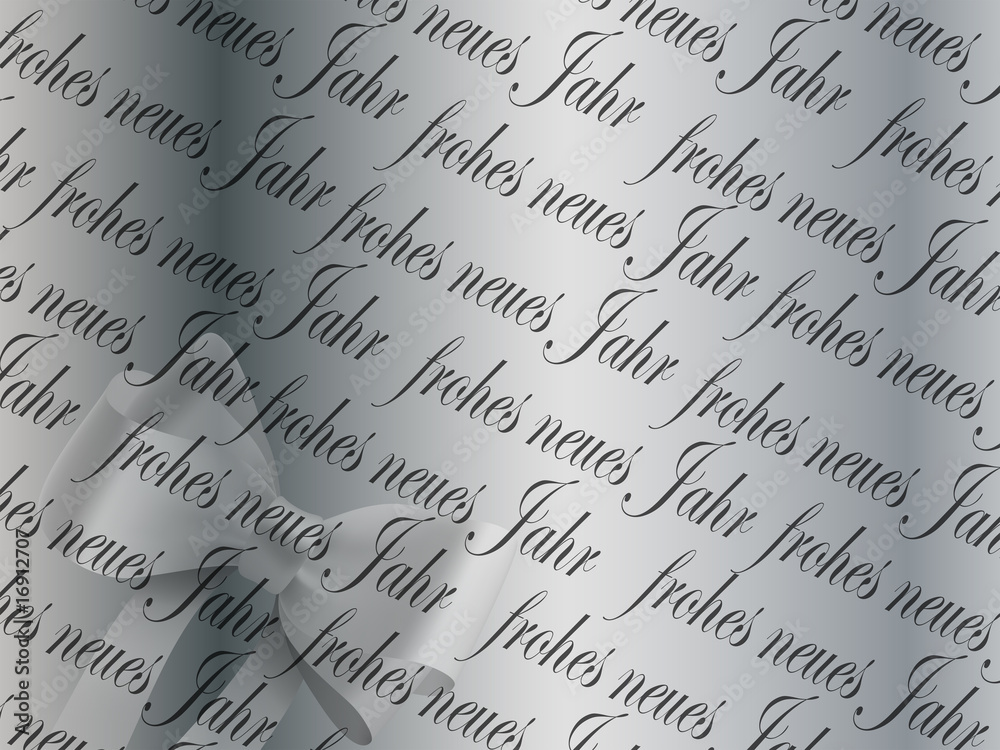 neues Jahr
neues
neues Jahr
frohes neues Jahr
frohes
frohes neues Jahr
frohes neues Jahr
frohes neues Jahr
frohes neues Jahr
frohes neues
neues Jahr
frohes neues Jahr
frohes neues Jahr
Jahr
frohes neues Jahr
frohes neues
neues Jahr
frohes neues Jahr
frohes neues Jahr
neues Jahr
frohes neues Jahr
Adobe Stock | #16912707